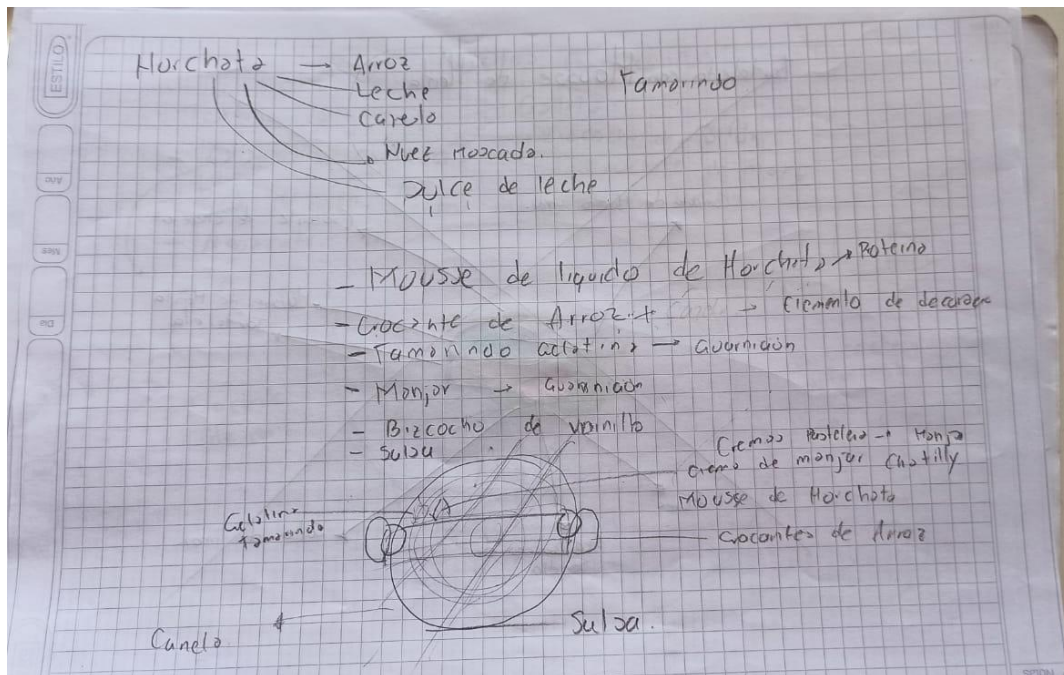 ESTILO
Horchata → Arroz
Leche
Canela
Nuez Moscada.
Dulce de leche
Tamarindo
Año
Mes
Dia
- Mousse de liquido de Horchata → Proteina
- Crocante de Arroz + → Elemento de decoracion
- Tamarindo gelatina → Guarnición
- Manjar → Guarnicion
- Bizcocho de vainilla
- Salsa
Cremas Pastelera → Manjar
Crema de manjar Chatilly
Mousse de Horchata
Gelatina
tamarindo
Crocantes de Arroz
Salsa.
Canela